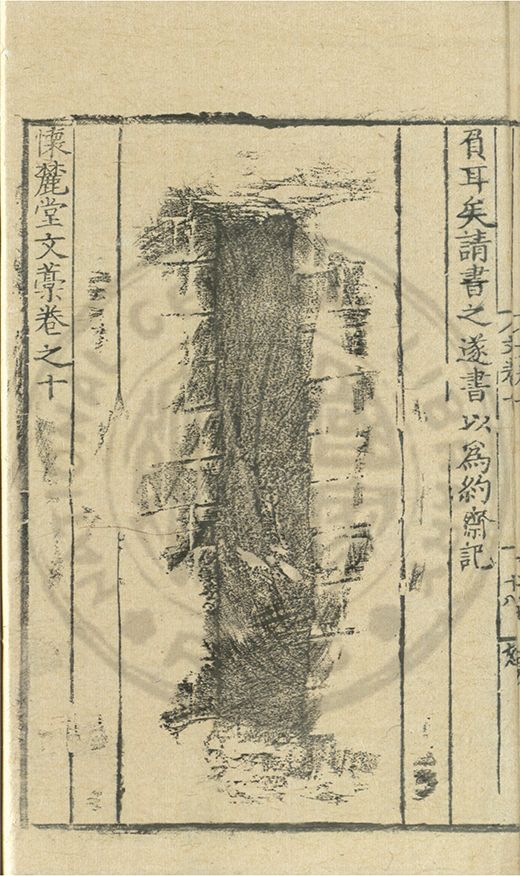 負耳矣請書之遂書以為約齋記
懷麓堂文藁卷之十